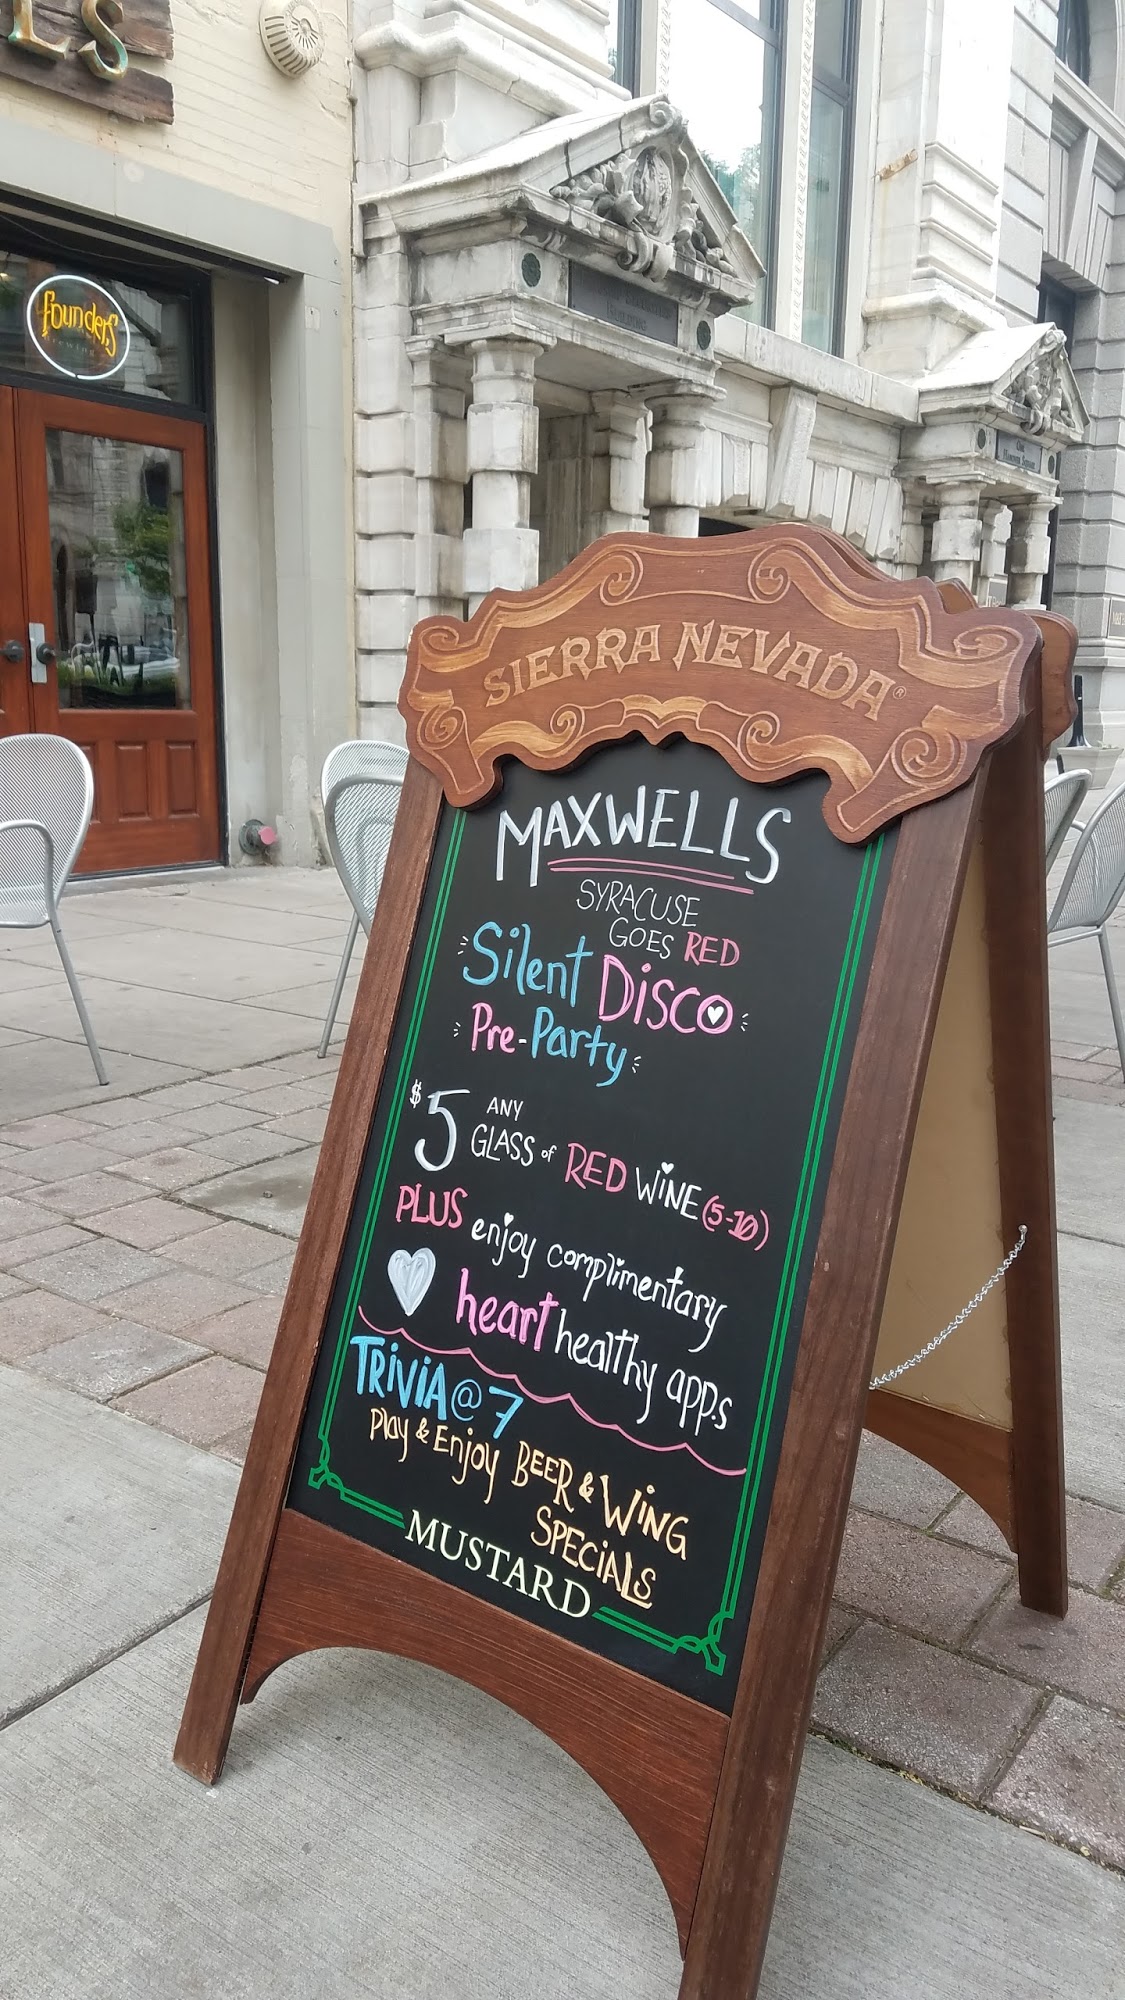 LS
founders
brewing
BUILDING
ONE
HANOVER SQUARE
SIERRA NEVADA®
MAXWELLS
SYRACUSE
GOES RED
Silent Disco
Pre-Party
$5 ANY
GLASS of RED WINE (5-10)
PLUS enjoy complimentary
heart healthy apps
TRIVIA @ 7
Play & Enjoy BEER & WING
SPECIALS
MUSTARD